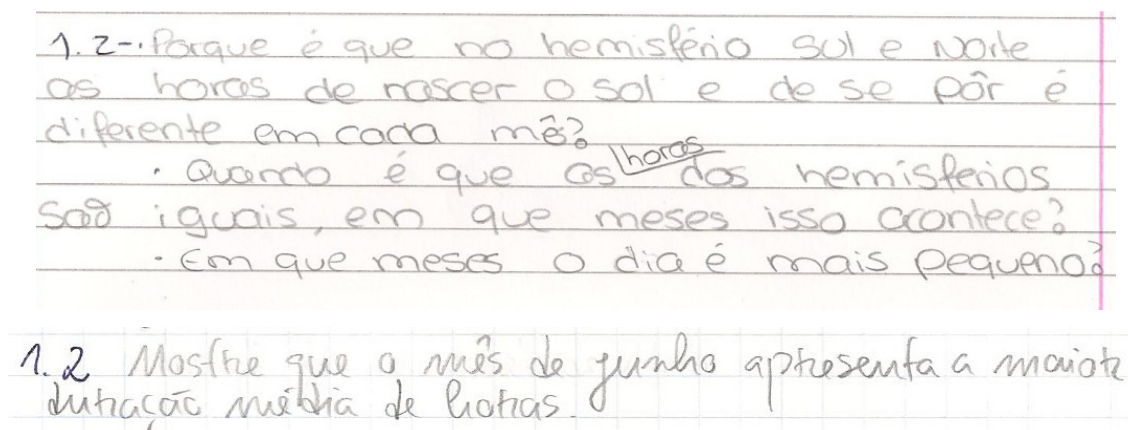 1.2-. Porque é que no hemisfério sul e Norte
as horas de nascer o sol e de se pôr é
diferente em cada mês?
. Quando é que as horas dos hemisferios
são iguais, em que meses isso acontece?
. Em que meses o dia é mais pequeno?
1.2 Mostre que o mês de junho apresenta a maior
duração média de horas.